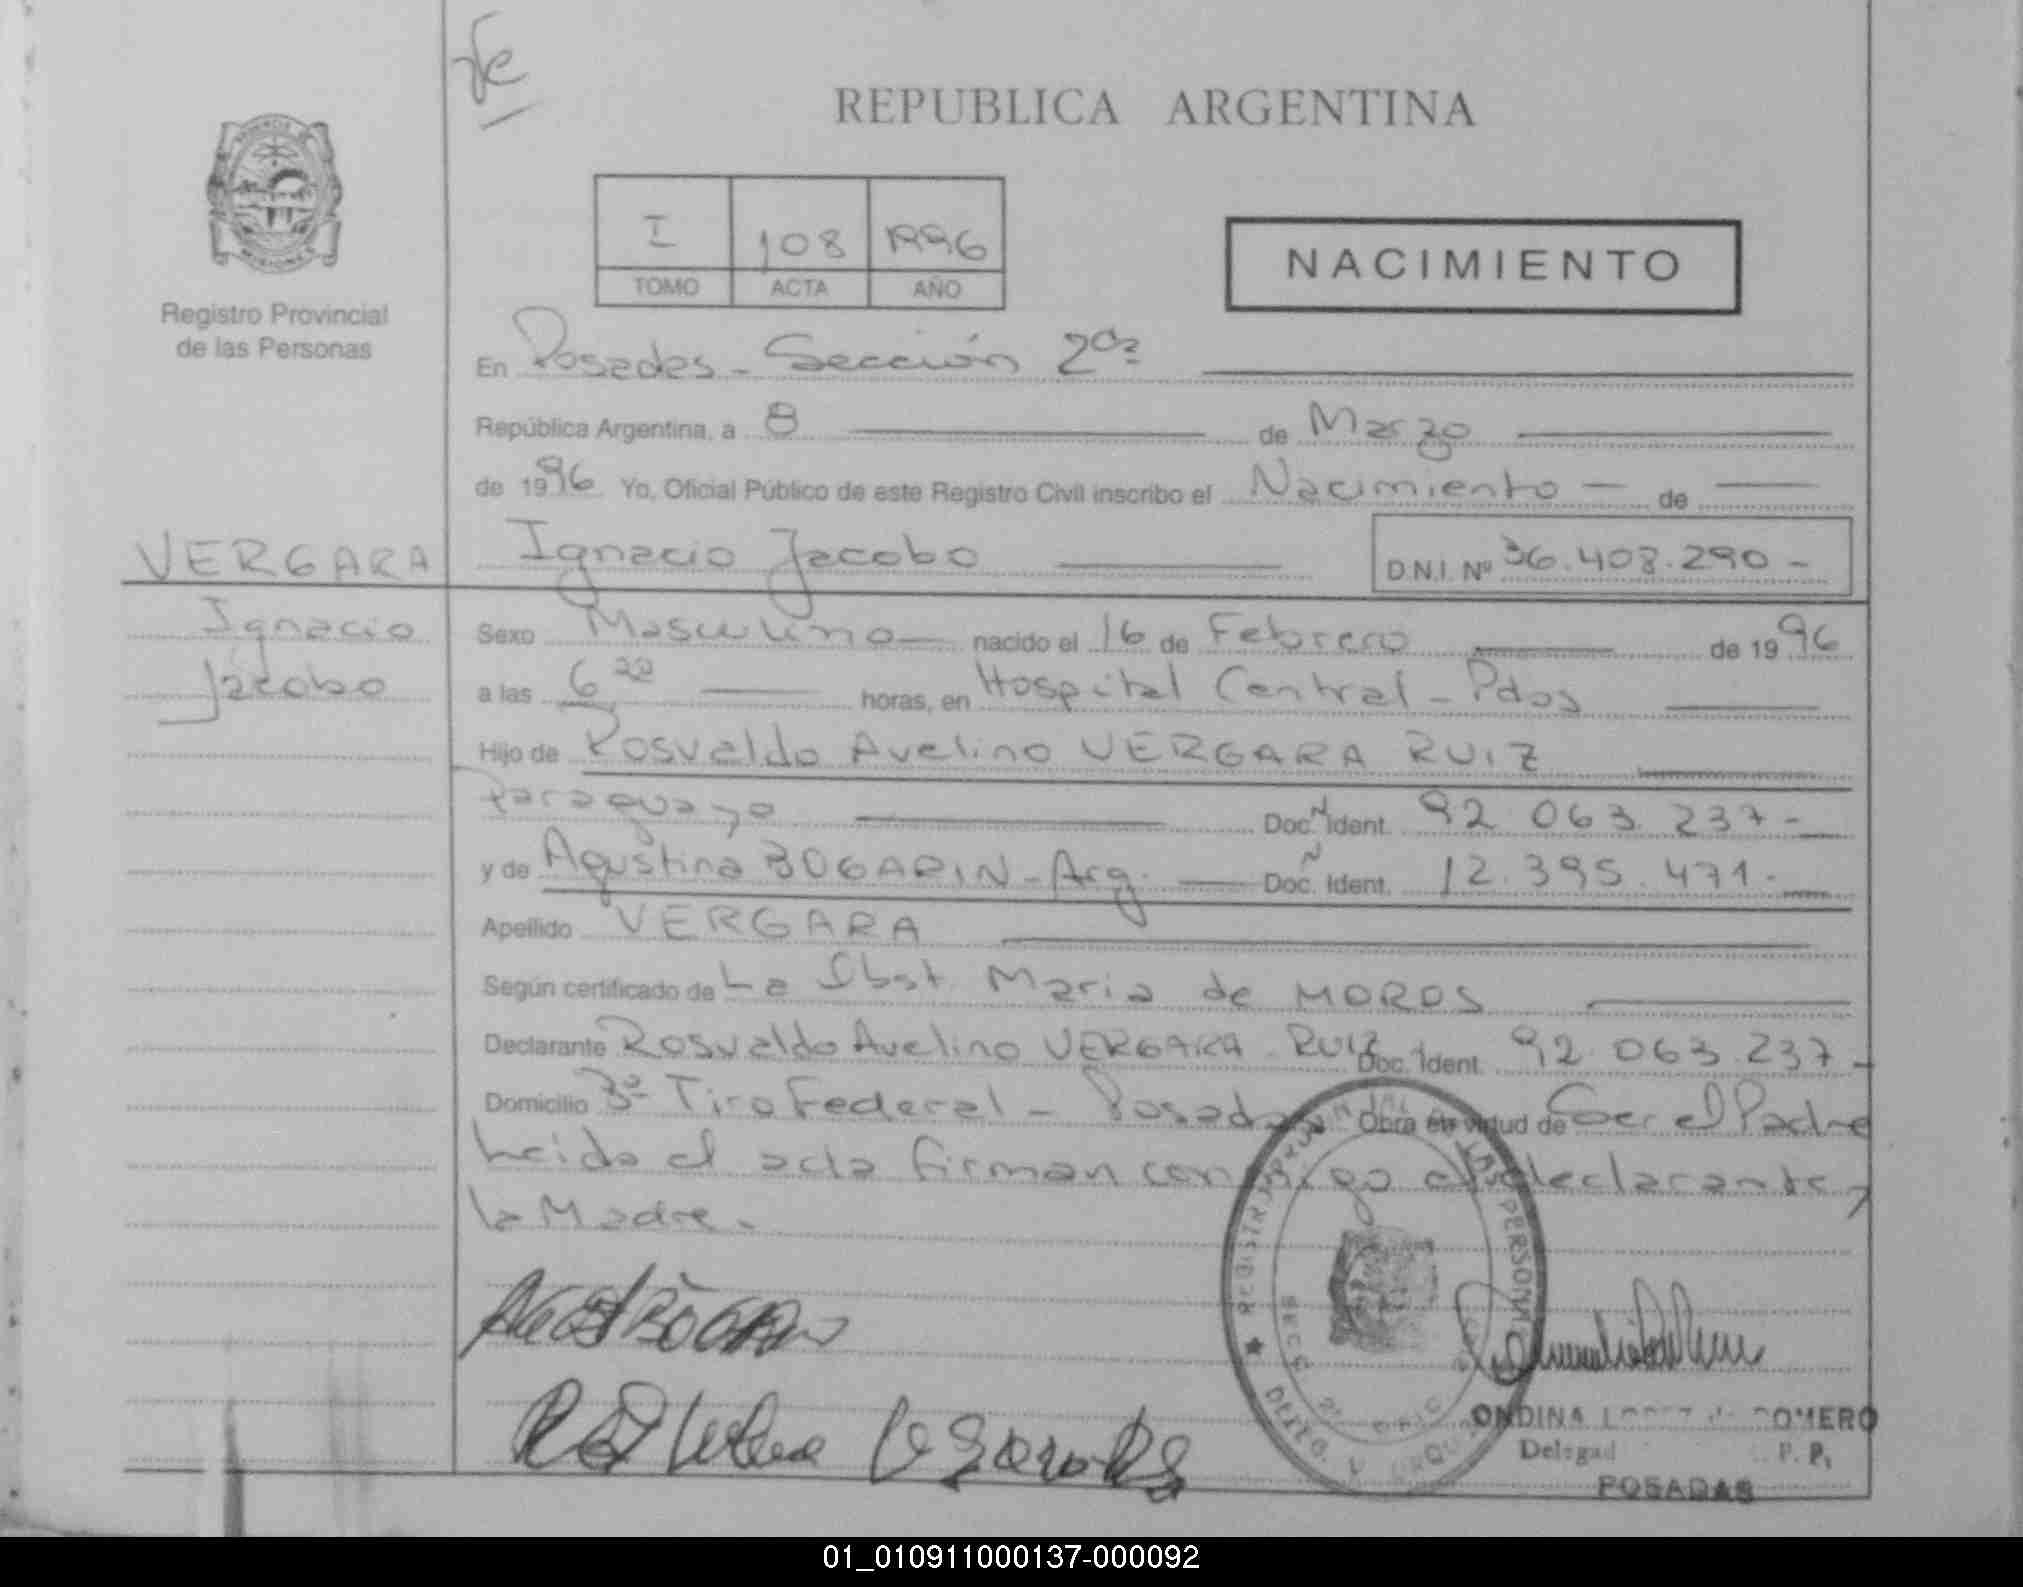 Te
REPUBLICA ARGENTINA
I 108 1996
TOMO ACTA AÑO
NACIMIENTO
Registro Provincial
de las Personas
En Posadas - Sección 2da
República Argentina, a 8 de Marzo
de 1996 Yo, Oficial Público de este Registro Civil inscribo el Nacimiento - de
VERGARA Ignacio Jacobo D.N.I. Nº 36.408.290 -
Ignacio
Jacobo
Sexo Masculino nacido el 16 de Febrero de 1996
a las 6 horas, en Hospital Central - Pdas
Hijo de Rosvaldo Avelino VERGARA RUIZ
Paraguayo Doc. Ident. 92.063.237-
y de Agustina BOGARIN - Arg. Doc. Ident. 12.395.471.-
Apellido VERGARA
Según certificado de La Obst Maria de MOROS
Declarante Rosvaldo Avelino VERGARA RUIZ Doc. Ident. 92.063.237-
Domicilio Bº Tiro Federal - Posadas Obra en virtud de Ser el Padre
Leida el acta firman conmigo el declarante y
la Madre.
REGISTRO PROVINCIAL DE LAS PERSONAS
SECC 2ª
DPTO.
ONDINA LOPEZ de ROMERO
P. P.
POSADAS
01_010911000137-000092